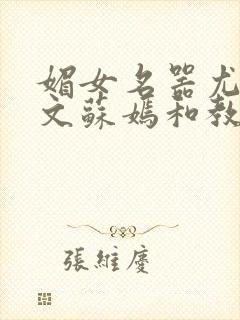 媚女名器尤
文蘇媽和教
張維慶